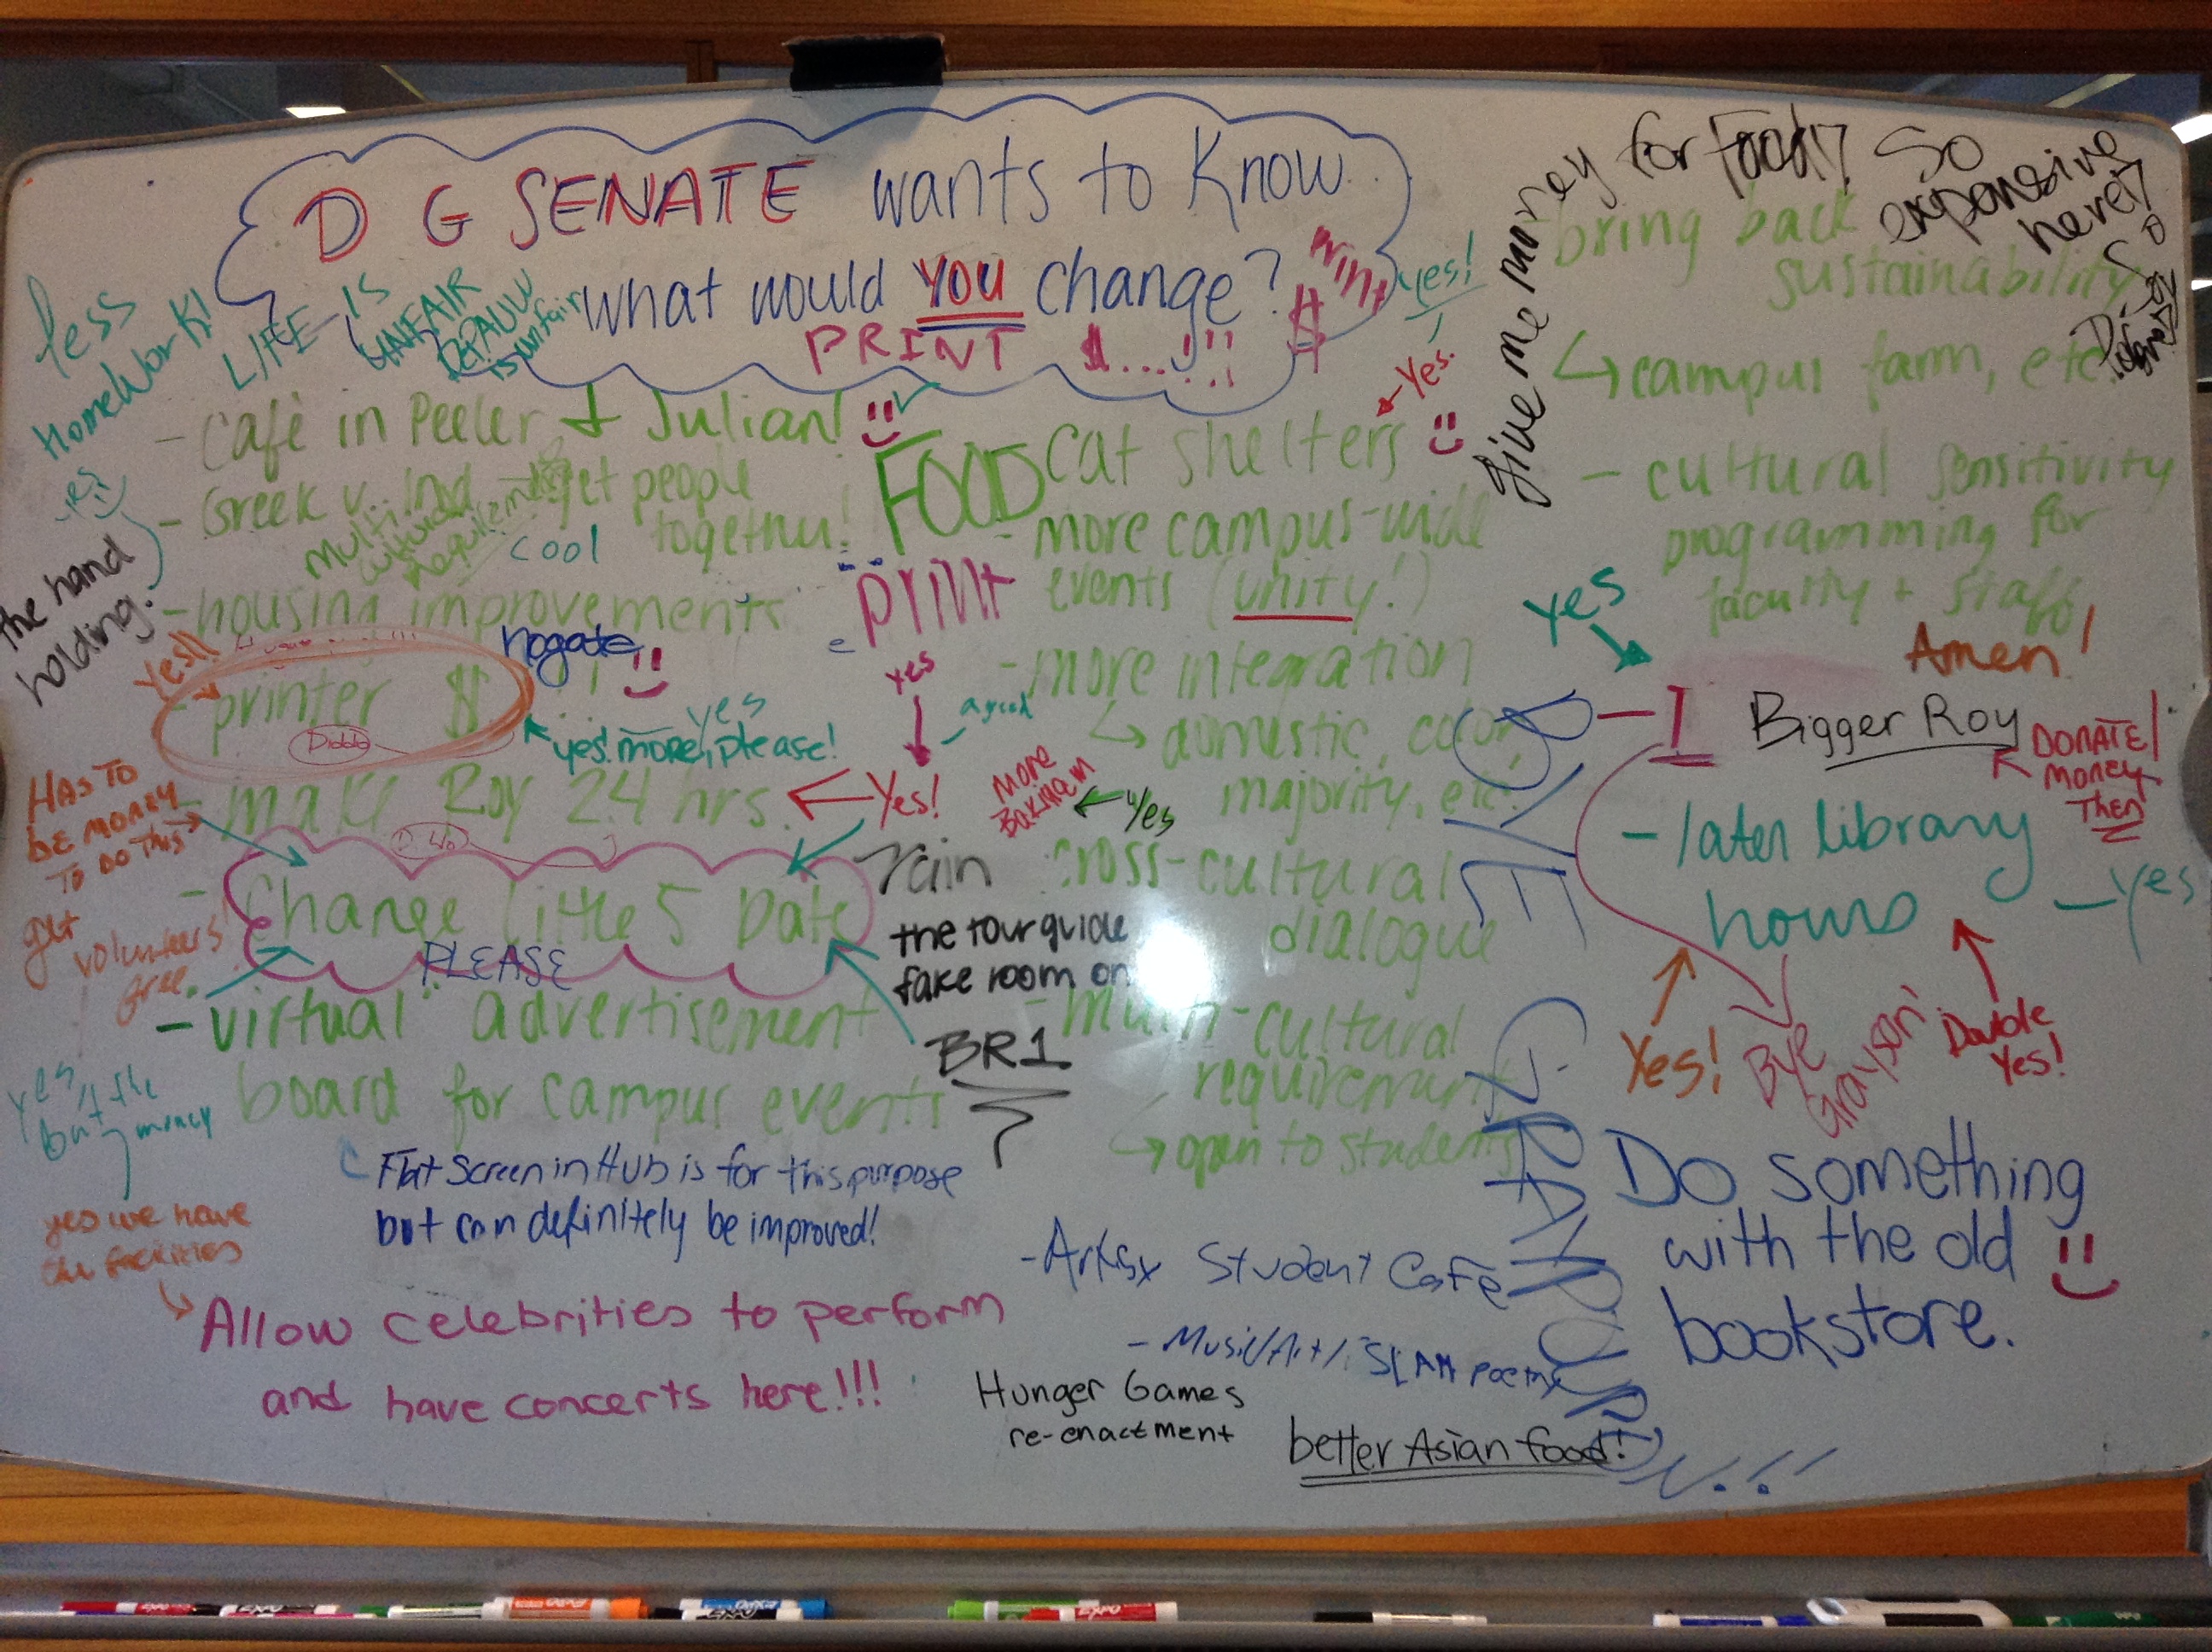 D G SENATE wants to Know
what would YOU change?
PRINT $...!!!
print
yes!
less
HomeWork!
LIFE IS
UNFAIR
DEPAUW
is unfair
yes
the hand
holding.
- Café in Peeler + Julian!
- Greek v. Ind → get people
together!
cool
multi
cultural
requirements
- housing improvements
Yes!!
printer $
hogate
yes
yes! more, please!
- make Roy 24 hrs.
Yes!
yes
agreed
HAS TO
be MONEY
TO DO THIS
get
volunteers
free.
- Change Little 5 Date
PLEASE
- "virtual" advertisement
board for campus events
Flat Screen in Hub is for this purpose
but can definitely be improved!
yes,
but the
money
yes we have
the facilities
Allow celebrities to perform
and have concerts here!!!
FOOD
print
cat shelters
← Yes.
- more campus-wide
events (unity!)
- more integration
↳ domestic, color,
majority, etc.
More
Yes
rain
the tour guide
fake room on
BR1
cross-cultural
dialogue
- multi-cultural
requirement
↳ open to students
- Student Café
- Music/Art/SLAM poetry
Hunger Games
re-enactment
better Asian food!
Give me money for Food!
So
expensive
here!
bring back
sustainability
↳ campus farm, etc
- cultural sensitivity
programming for
faculty + staff
Amen!
Yes
I
Bigger Roy
DONATE!
MONEY
THEN
- later library
hours
- yes
Yes!
Bye
Grayson
Double
Yes!
Do something
with the old
bookstore.